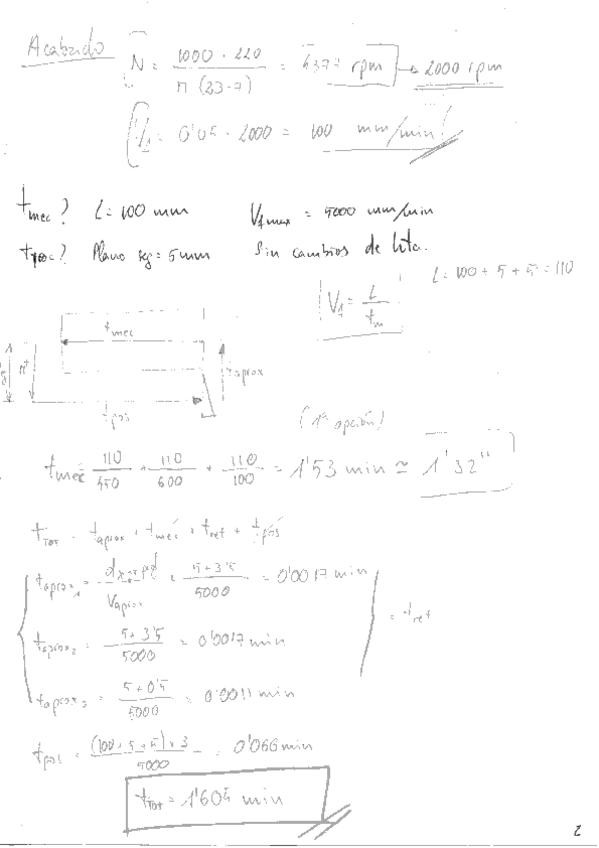 Acabado N = 1000 · 220 / π (23-7) = 4377 rpm → 2000 rpm
V1 = 0'05 · 2000 = 100 mm/min
tmec? L = 100 mm Vfmax = 5000 mm/min
tpos? Plano seg = 5mm Sin cambios de hta.
L = 100 + 5 + 5 = 110
V1 = L / tm
tmec
taprox
tpos
(1ª opción)
tmec = 110/450 + 110/600 + 110/100 = 1'53 min ≃ 1'32"
tTOT = taprox + tmec + tret + tpos
taprox1 = / Vaprox = 5+3'5 / 5000 = 0'0017 min
taprox2 = 5+3'5 / 5000 = 0'0017 min = tret
taprox3 = 5+0'5 / 5000 = 0'0011 min
tpos = (100+5+5)×3 / 5000 = 0'066 min
tTOT = 1'604 min
2